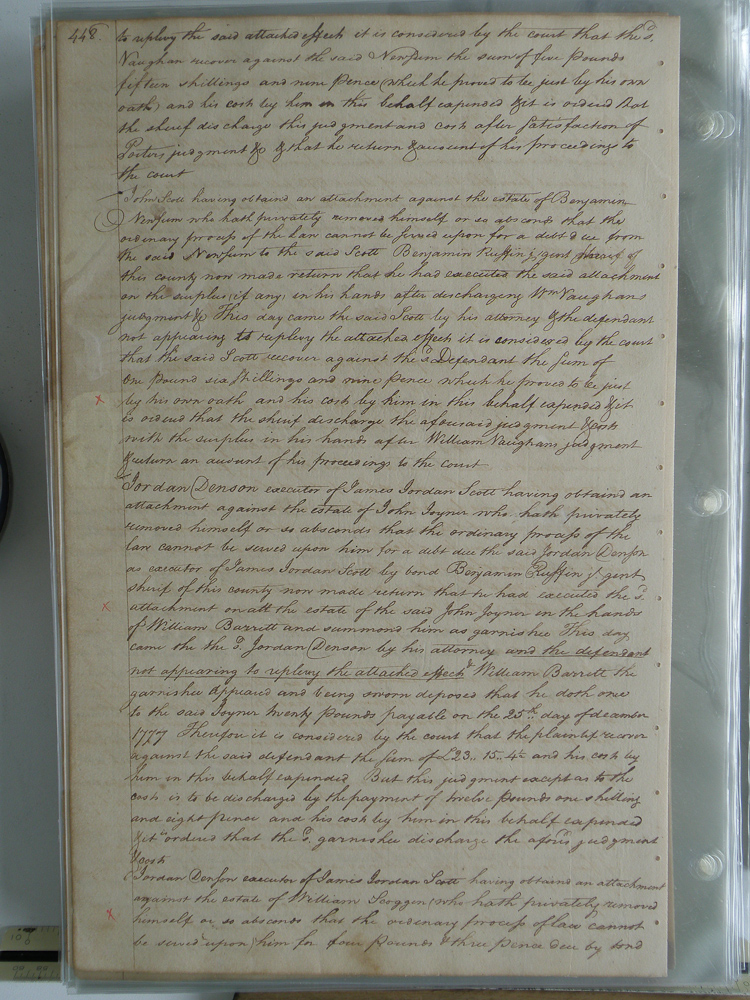 448.
to replevy the said attached effects it is considered by the court that the sd.
Vaughan recover against the said Newsum the sum of five Pounds
fifteen shillings and nine Pence (which he proved to be just by his own
oath) and his cost by him in this behalf expended & it is ordered that
the sheriff discharge this judgment and costs after satisfaction of
Porters judgment &c & that he return & account of his proceedings to
the court
John Scott having obtaind an attachment against the estate of Benjamin
Newsum who hath privately removed himself or so absconds that the
ordinary process of the Law cannot be served upon for a debt due from
the said Newsum to the said Scott Benjamin Ruffin jr gent sheriff of
this county now made return that he had executed the said attachment
on the surplus, if any, in his hands after discharging Wm Vaughans
judgment &c This day came the said Scott by his attorney & the defendant
not appearing to replevy the attached effects it is considered by the court
that the said Scott recover against the sd. Defendant the sum of
One Pound six shillings and nine Pence which he proved to be just
by his own oath and his costs by him in this behalf expended & it
is ordered that the sheriff discharge the aforesaid judgment & costs
with the surplus in his hands after William Vaughans judgment
& return an account of his proceedings to the court
Jordan Denson executor of James Jordan Scott having obtaind an
attachment against the estate of John Joyner who hath privately
removed himself or so absconds that the ordinary process of the
law cannot be served upon him for a debt due the said Jordan Denson
as executor of James Jordan Scott by bond Benjamin Ruffin jr gent
sherif of this county now made return that he had executed the sd.
attachment on all the estate of the said John Joyner in the hands
of William Barrett and summond him as garnishee This day
came the the sd. Jordan Denson by his attorney and the defendant
not appearing to replevy the attached effects & William Barrett the
garnishee appeared and being sworn deposed that he doth owe
to the said Joyner twenty Pounds payable on the 25th. day of decamber
1777 Therefore it is considered by the court that the plaintif recover
against the said defendant the sum of £23.. 15.. 4 and his costs by
him in this behalf expended But this judgment except as to the
costs is to be discharged by the payment of twelve Pounds one shilling
and eight Pence and his cost by him in this behalf expended
& it ordered that the sd. garnishee discharge the aforesd judgment
& costs
Jordan Denson executor of James Jordan Scott having obtaind an attachment
against the estate of William Scoggen, who hath privately removed
himself or so absconds that the ordinary process of law cannot
be served upon him for four Pounds & three Pence due by bond